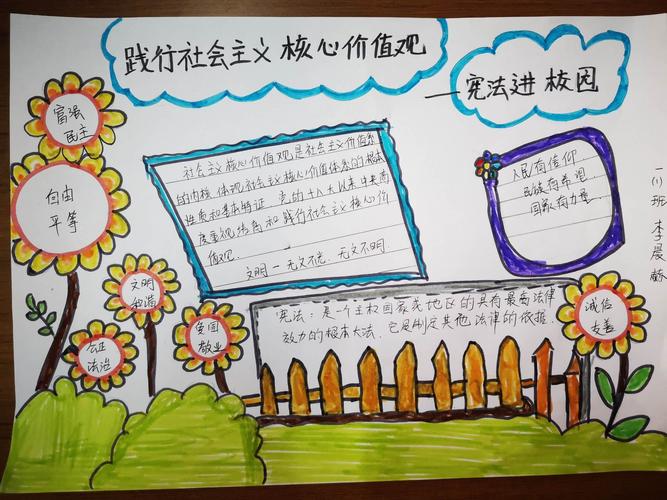 践行社会主义核心价值观
——宪法进校园
富强
民主
自由
平等
文明
和谐
公正
法治
爱国
敬业
诚信
友善
社会主义核心价值观是社会主义价值系
的内核 体现社会主义核心价值体系的根本
性质和基本特征 党的十八大以来中央高
度重视培育和践行社会主义核心价
值观.
文明一无文不远. 无文不明
人民有信仰
民族有希望
国家有力量
宪法:是一个主权国家或地区的具有最高法律
效力的根本大法.它是制定其他法律的依据.
一(1)班 李晨